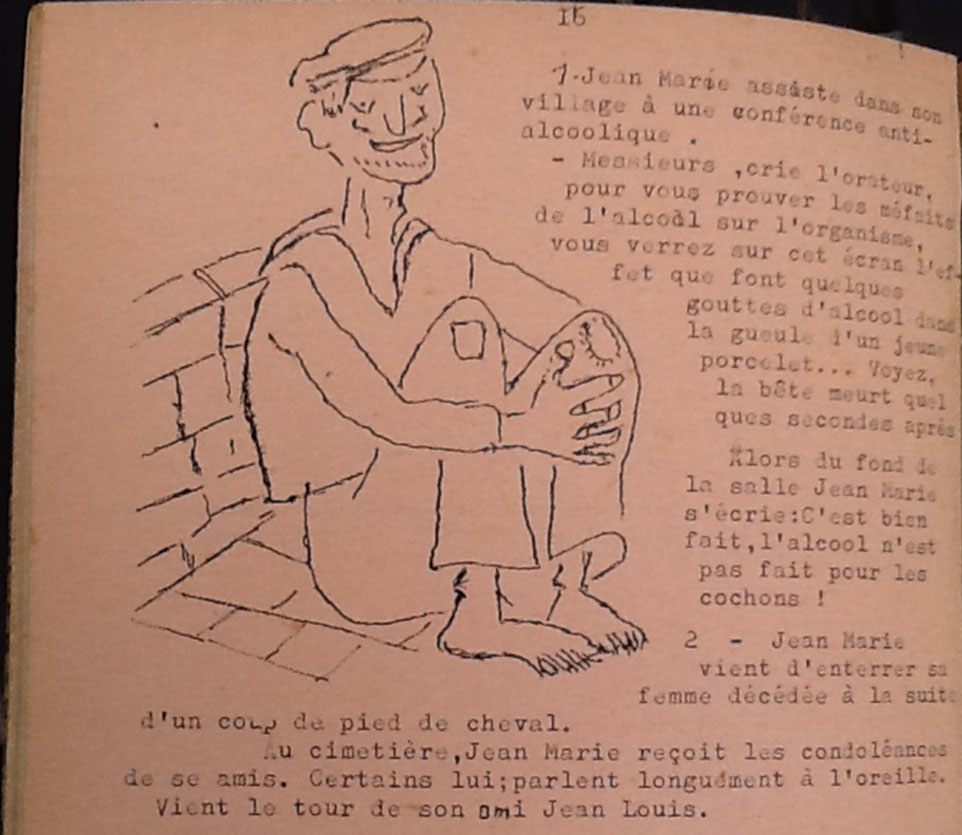 16
1-Jean Marie assiste dans son
village à une conférence anti-
alcoolique .
- Messieurs ,crie l'orateur,
pour vous prouver les méfaits
de l'alcoôl sur l'organisme,
vous verrez sur cet écran l'ef-
fet que font quelques
gouttes d'alcool dans
la gueule d'un jeune
porcelet... Voyez,
la bête meurt quel
ques secondes après
Alors du fond de
la salle Jean Marie
s'écrie:C'est bien
fait,l'alcool n'est
pas fait pour les
cochons !
2 - Jean Marie
vient d'enterrer sa
femme décédée à la suite
d'un coup de pied de cheval.
Au cimetière,Jean Marie reçoit les condoléances
de se amis. Certains lui;parlent longuément à l'oreille.
Vient le tour de son ami Jean Louis.